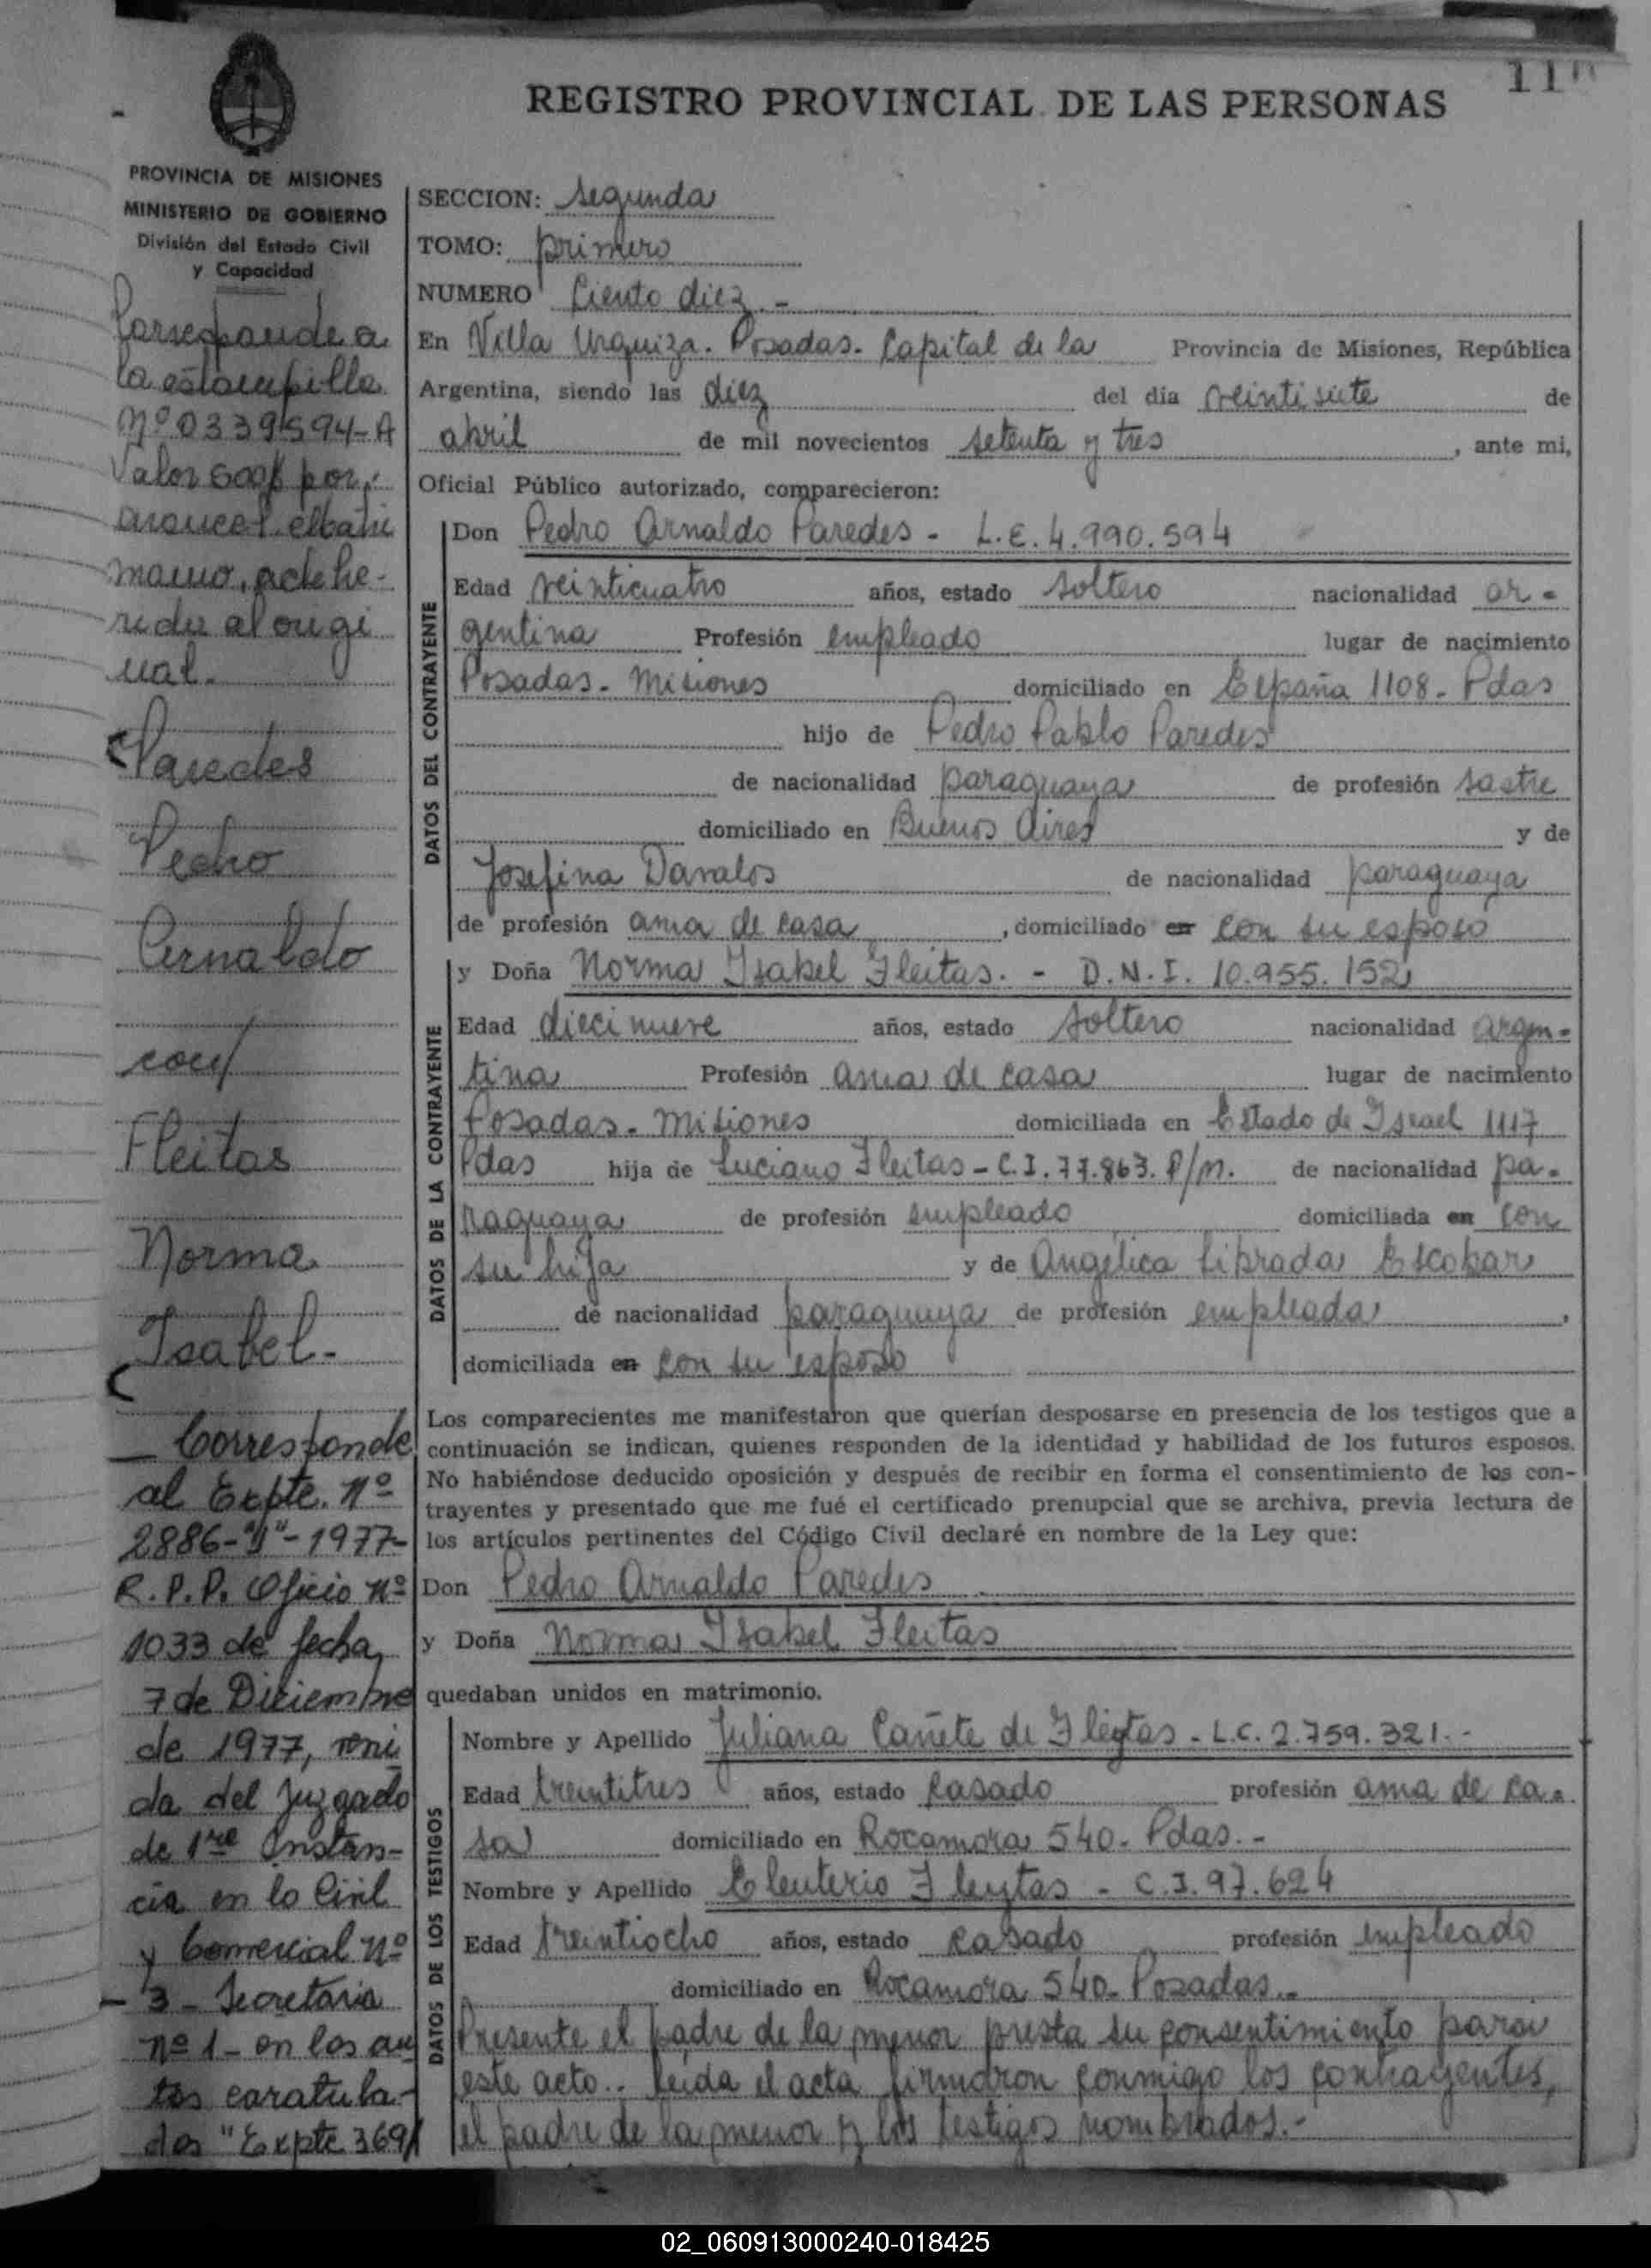 110
REGISTRO PROVINCIAL DE LAS PERSONAS
PROVINCIA DE MISIONES
MINISTERIO DE GOBIERNO
División del Estado Civil
y Capacidad
Corresponde a
la estampilla
Nº 0339594-A
Valor por
mauno, adhe-
rida al origi
nal.
Paredes
Pedro
Arnaldo
con/
Fleitas
Norma
Isabel.-
— Corresponde
al Expte. Nº
2886-"J"-1977-
R.P.P. Oficio Nº
1033 de fecha
7 de Diciembre
de 1977, veni
da del Juzgado
de 1re Instan-
cia en lo Civil
y Comercial Nº
- 3 - Secretaria
nº 1 - en los au
tos caratula-
dos "Expte 369/
SECCION: segunda
TOMO: primero
NUMERO Ciento diez.-
En Villa Urquiza. Posadas. Capital de la Provincia de Misiones, República
Argentina, siendo las diez del día veintisiete de
abril de mil novecientos setenta y tres, ante mi,
Oficial Público autorizado, comparecieron:
DATOS DEL CONTRAYENTE
Don Pedro Arnaldo Paredes - L.E. 4.990.594
Edad veinticuatro años, estado soltero nacionalidad ar-
gentina Profesión empleado lugar de nacimiento
Posadas - Misiones domiciliado en España 1108 - Pdas
hijo de Pedro Pablo Paredes
de nacionalidad paraguaya de profesión sastre
domiciliado en Buenos Aires y de
Josefina Davalos de nacionalidad paraguaya
de profesión ama de casa, domiciliado en con su esposo
DATOS DE LA CONTRAYENTE
y Doña Norma Isabel Fleitas. - D.N.I. 10.955.152
Edad diecinueve años, estado soltero nacionalidad argen-
tina Profesión ama de casa lugar de nacimiento
Posadas - Misiones domiciliada en Estado de Israel 1117
Pdas hija de Luciano Fleitas - C.I. 77.863. P/M. de nacionalidad pa-
raguaya de profesión empleado domiciliada en con
su hija y de Angélica Librada Escobar
de nacionalidad paraguaya de profesión empleada,
domiciliada en con su esposo
Los comparecientes me manifestaron que querían desposarse en presencia de los testigos que a
continuación se indican, quienes responden de la identidad y habilidad de los futuros esposos.
No habiéndose deducido oposición y después de recibir en forma el consentimiento de los con-
trayentes y presentado que me fué el certificado prenupcial que se archiva, previa lectura de
los artículos pertinentes del Código Civil declaré en nombre de la Ley que:
Don Pedro Arnaldo Paredes
y Doña Norma Isabel Fleitas
quedaban unidos en matrimonio.
DATOS DE LOS TESTIGOS
Nombre y Apellido Juliana Cañete de Fleytas - L.C. 2.759.321.-
Edad treintitres años, estado casado profesión ama de ca-
sa domiciliado en Rocamora 540 - Pdas.-
Nombre y Apellido Eleuterio Fleytas - C.I. 97.624
Edad treintiocho años, estado casado profesión empleado
domiciliado en Rocamora 540 - Posadas.-
Presente el padre de la menor presta su consentimiento para
este acto.. Leida el acta firmaron conmigo los contrayentes,
el padre de la menor y los testigos nombrados.-
02_060913000240-018425